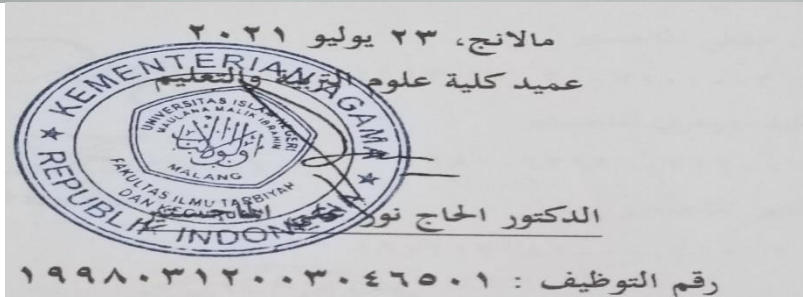 مالانج، ٢٣ يوليو ٢٠٢١
عميد كلية علوم التربية والتعليم
KEMENTERIAN AGAMA
UNIVERSITAS ISLAM NEGERI
MAULANA MALIK IBRAHIM
MALANG
FAKULTAS ILMU TARBIYAH
DAN
REPUBLIK INDONESIA
الدكتور الحاج نور الماجستير
رقم التوظيف : ١٩٩٨٠٣١٢٠٠٣٠٤٦٥٠١